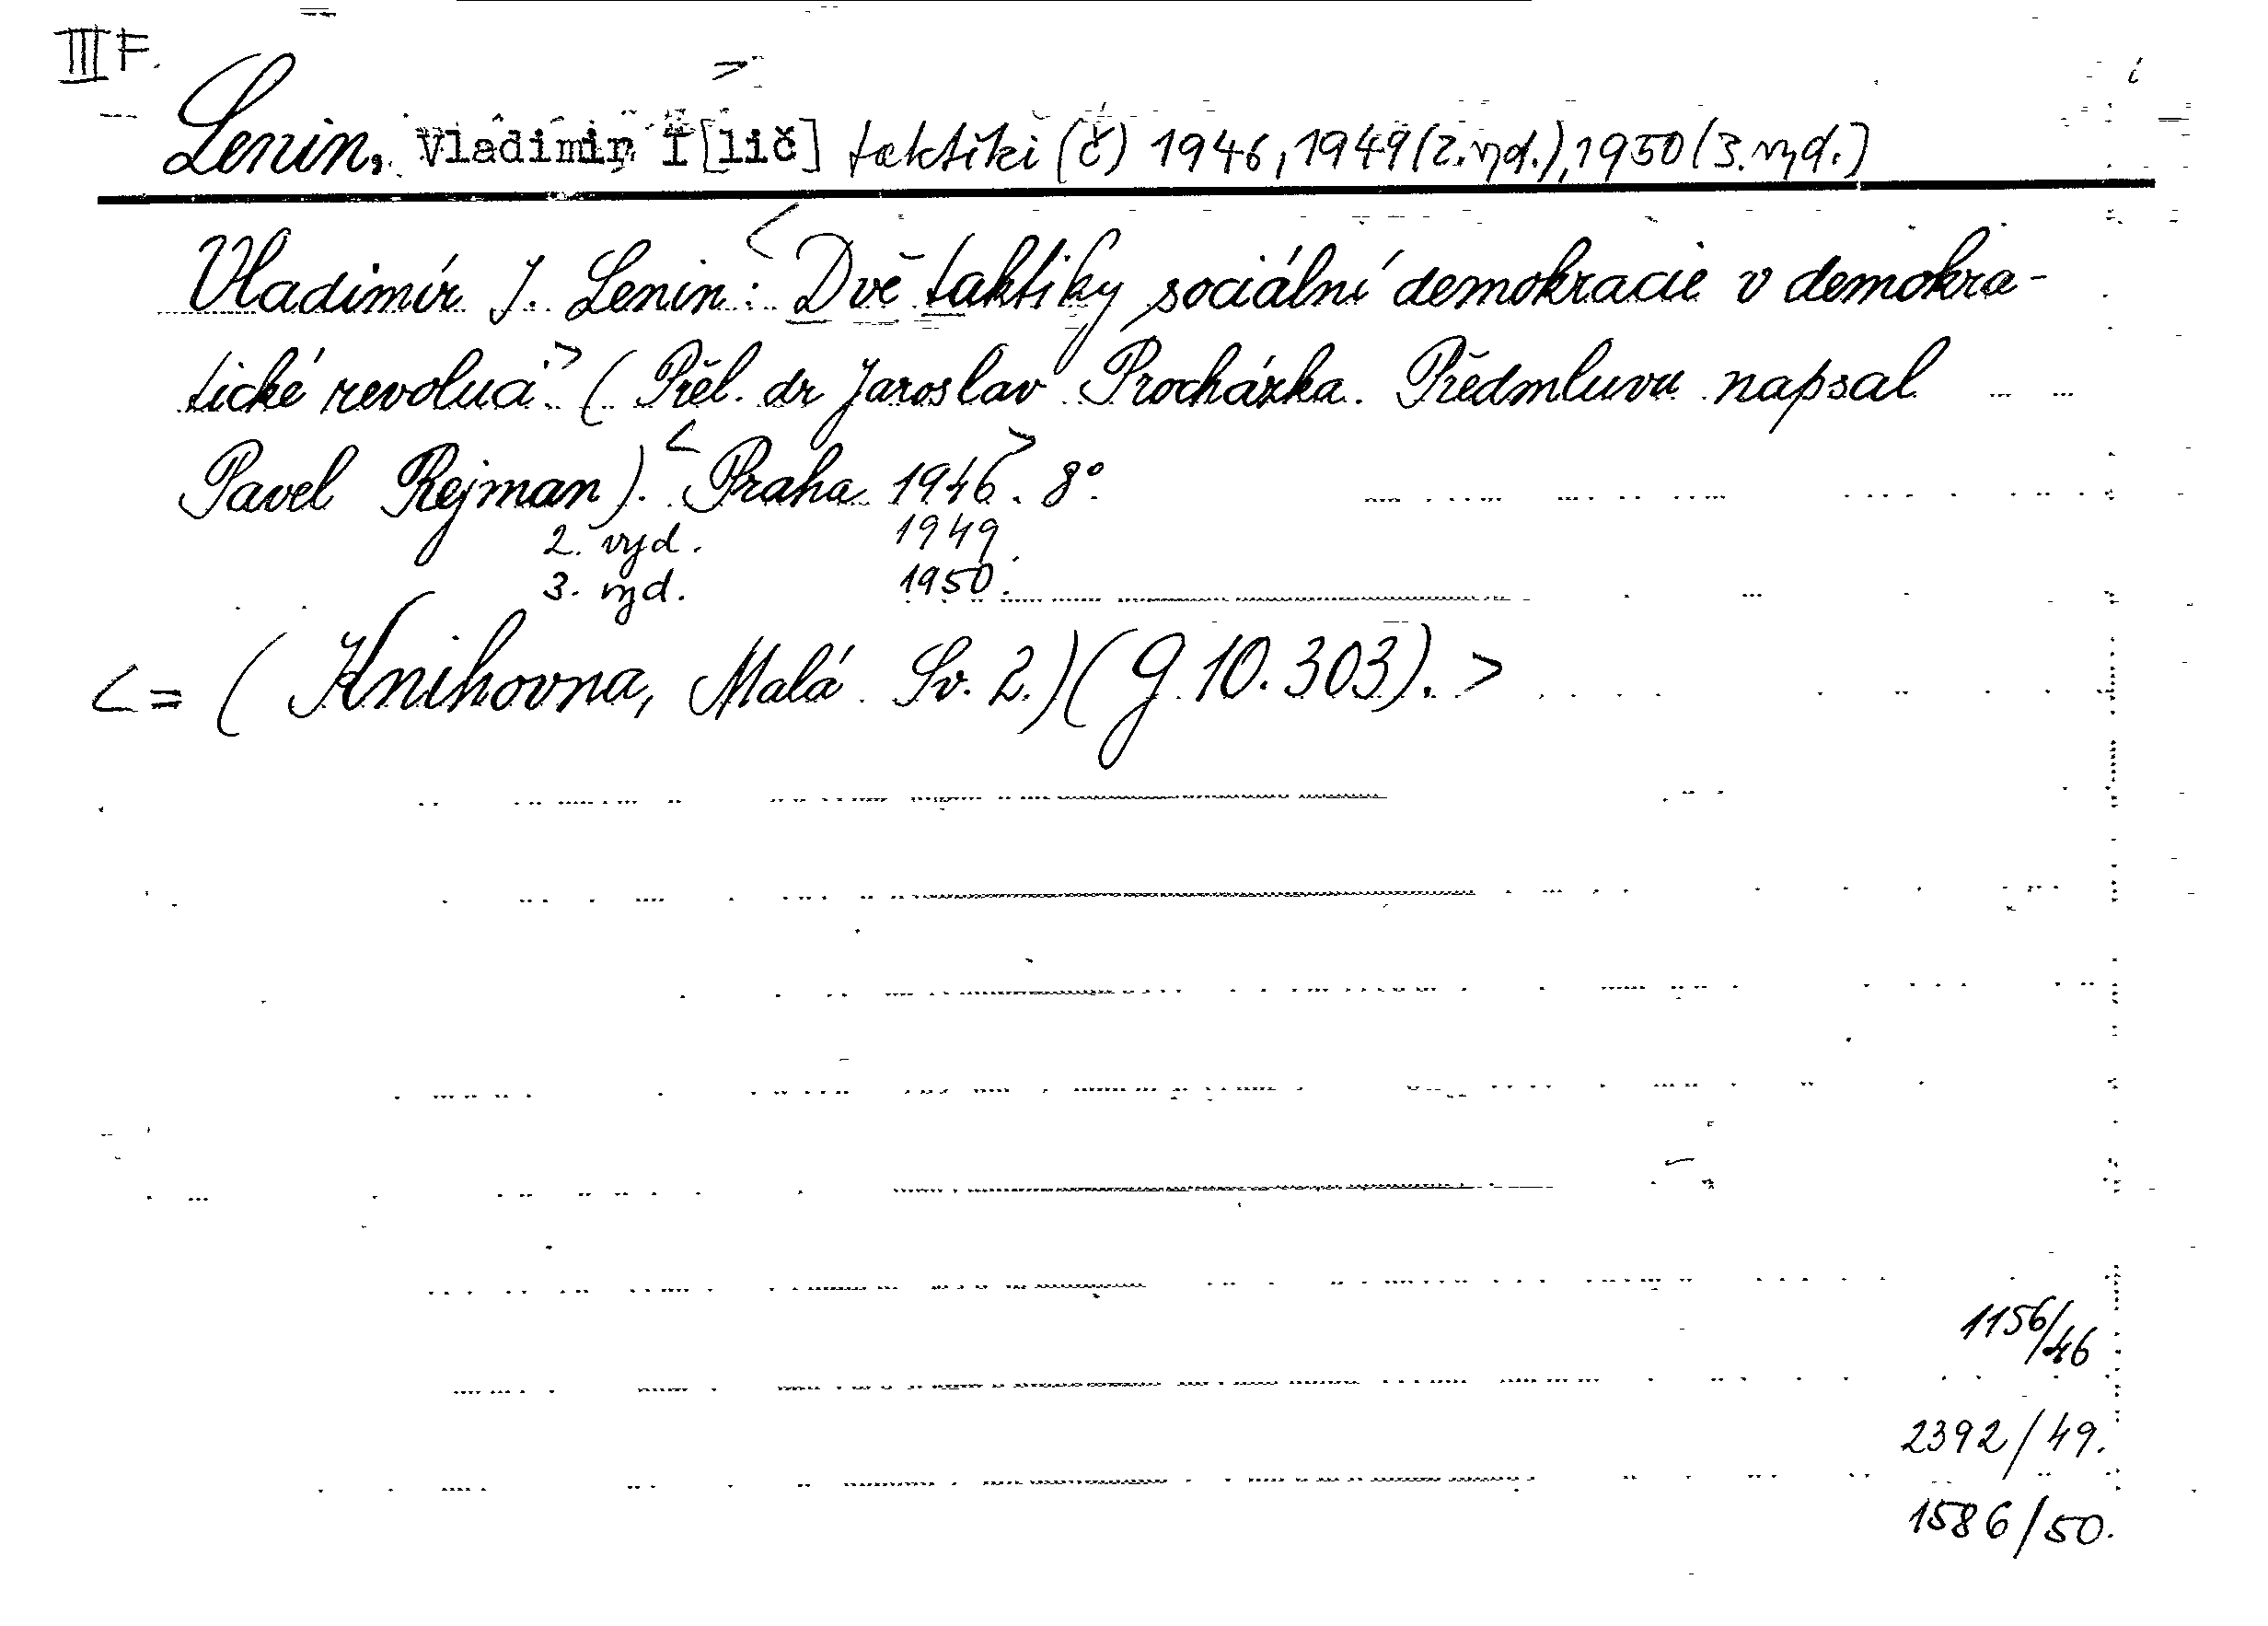 III F.
Lenin, Vladimir I[lič] taktiki (č) 1946, 1949 (2. vyd.), 1950 (3. vyd.)
Vladimír J. Lenin: <Dvě taktiky sociální demokracie v demokra-
tické revoluci.> (Přel. dr Jaroslav Procházka. Předmluvu napsal
Pavel Rejman). <Praha 1946>. 8°.
2. vyd. 1949.
3. vyd. 1950.
<= (Knihovna, Malá. Sv. 2.) (g 10.303).>
1156/46
2392/49.
1586/50.